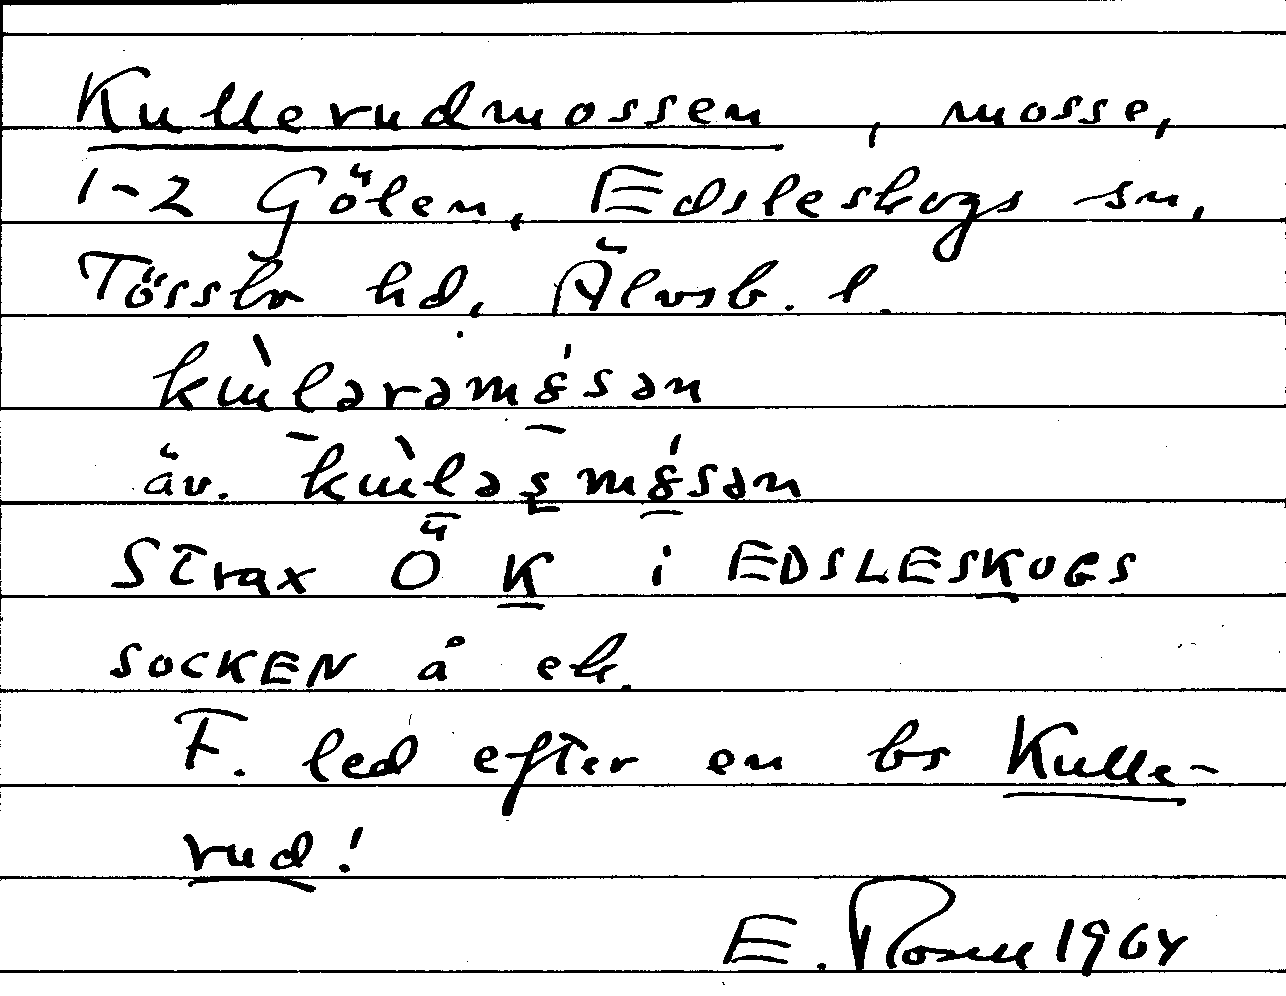 Kullerudmossen, mosse,
1-2 Gölen, Edsleskogs sn,
Tössbo hd, Älvsb. l.
kùlərəmɞ́sən
äv. kùləs̱mɞ́sən
Strax Ö K i EDSLESKOGS
SOCKEN å ek.
F. led efter en bs Kulle-
rud!
E. Rosell 1964